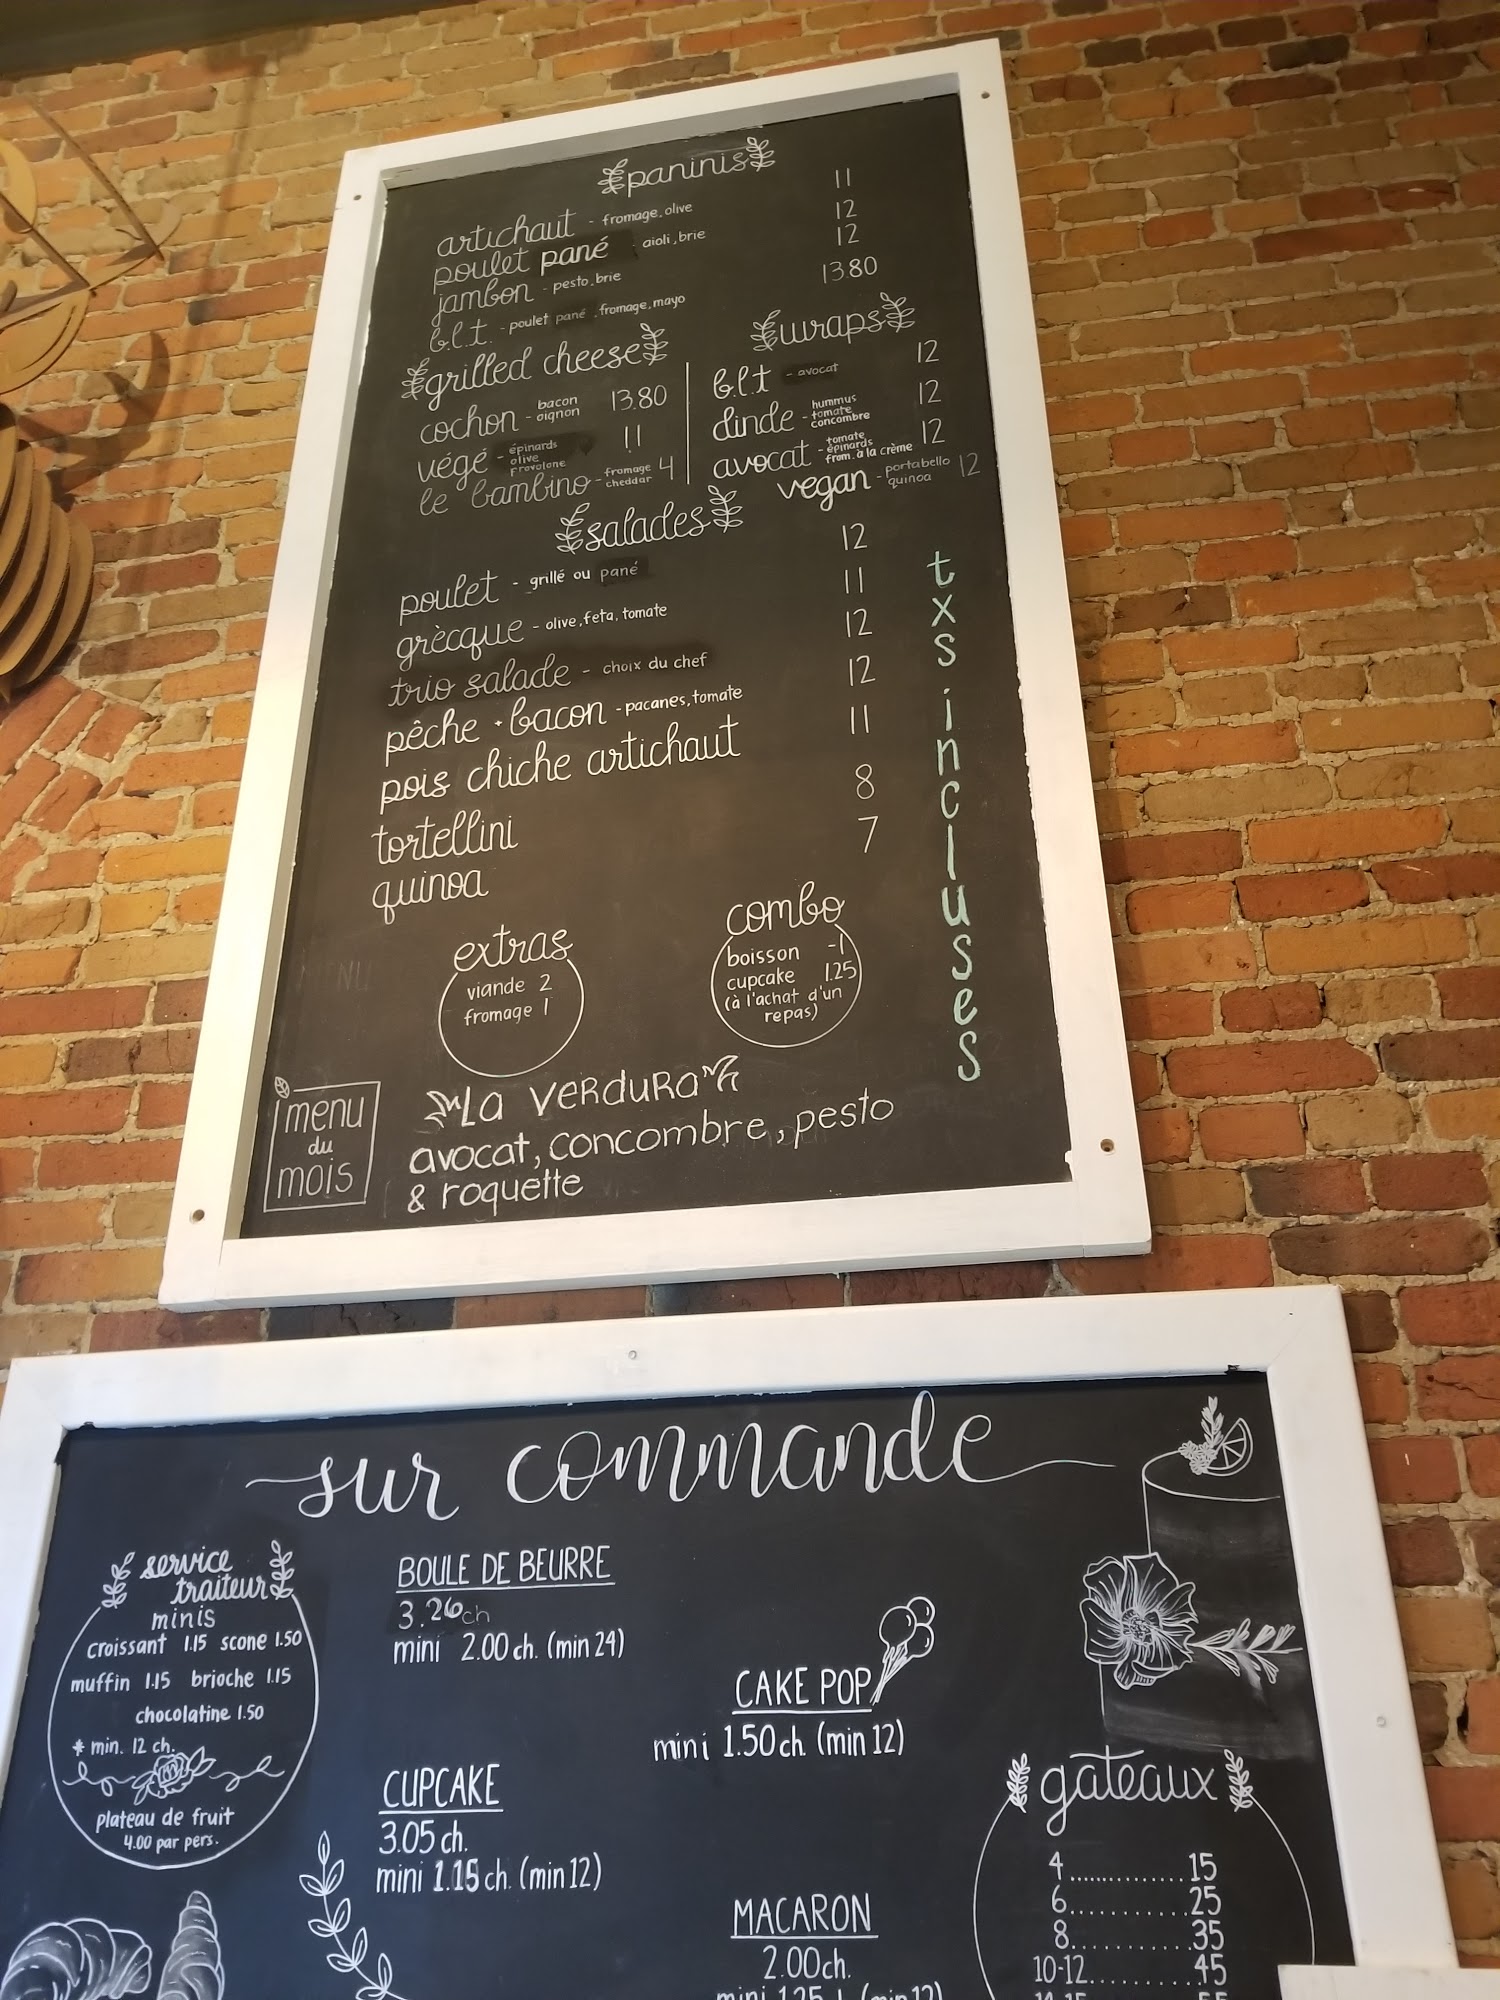 paninis
artichaut - fromage, olive 11
poulet pané - aioli, brie 12
jambon - pesto, brie 12
b.l.t. - poulet pané, fromage, mayo 13.80
grilled cheese
cochon - bacon oignon 13.80
végé - épinards olive provolone 11
le bambino - fromage cheddar 4
wraps
b.l.t - avocat 12
dinde - hummus tomate concombre 12
avocat - tomate épinards from. à la crème 12
vegan - portabello quinoa 12
salades
poulet - grillé ou pané 12
grècque - olive, feta, tomate 11
trio salade - choix du chef 12
pêche + bacon - pacanes, tomate 12
pois chiche artichaut 11
tortellini 8
quinoa 7
txs incluses
extras
viande 2
fromage 1
combo
boisson -1
cupcake 1.25
(à l'achat d'un
repas)
menu
du
mois
La verdura
avocat, concombre, pesto
& roquette
sur commande
service
traiteur
minis
croissant 1.15 scone 1.50
muffin 1.15 brioche 1.15
chocolatine 1.50
* min. 12 ch.
plateau de fruit
4.00 par pers.
BOULE DE BEURRE
3.26 ch
mini 2.00 ch. (min 24)
CUPCAKE
3.05 ch.
mini 1.15 ch. (min 12)
CAKE POP
mini 1.50 ch. (min 12)
MACARON
2.00 ch.
mini 1.25 (min 12)
gateaux
4..............15
6............25
8............35
10-12...........45